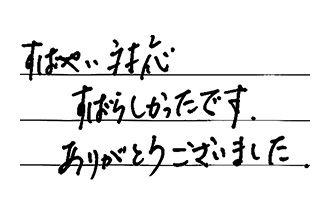 すばやい対応
すばらしかったです.
ありがとうございました.